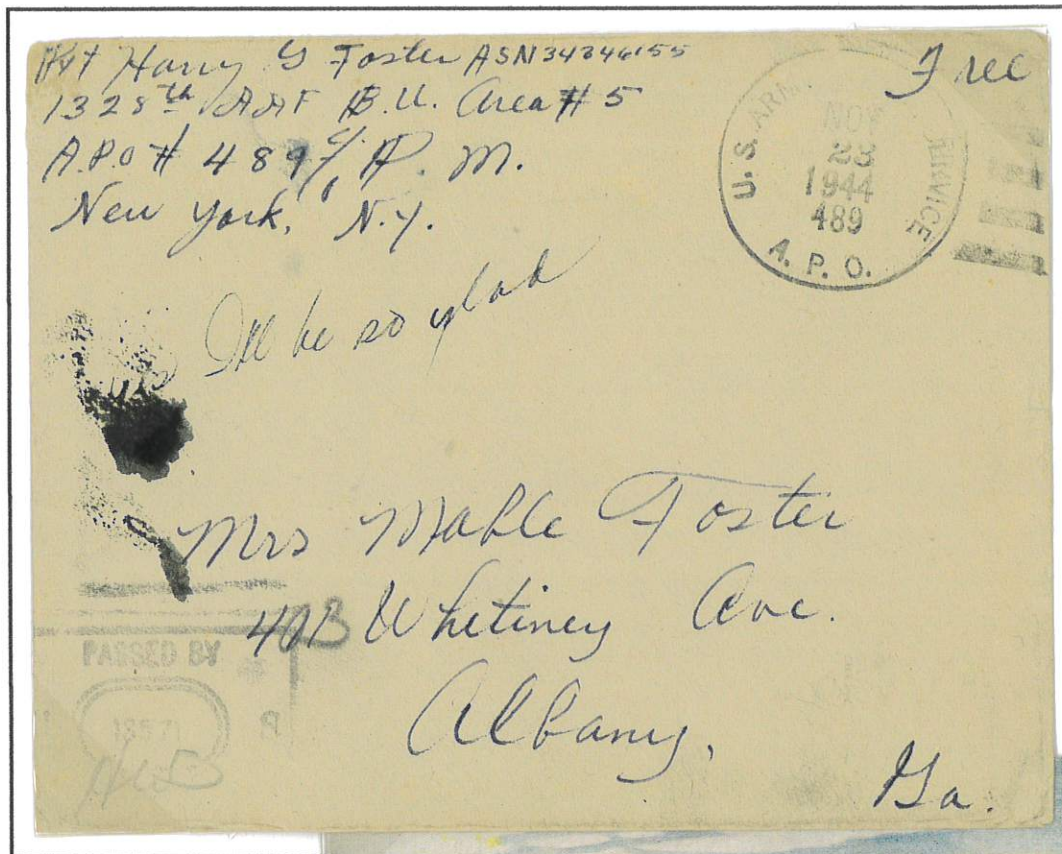 Pvt Harry G Foster ASN 34346155
1328th AAF B.U. Area # 5
A.P.O # 489 c/o P. M.
New York, N.Y.
Free
U.S. ARMY SERVICE
NOV
23
1944
489
A. P. O.
I'll be so glad
Mrs Mable Foster
Whetiney Ave.
Albany,
Ga.
PASSED BY